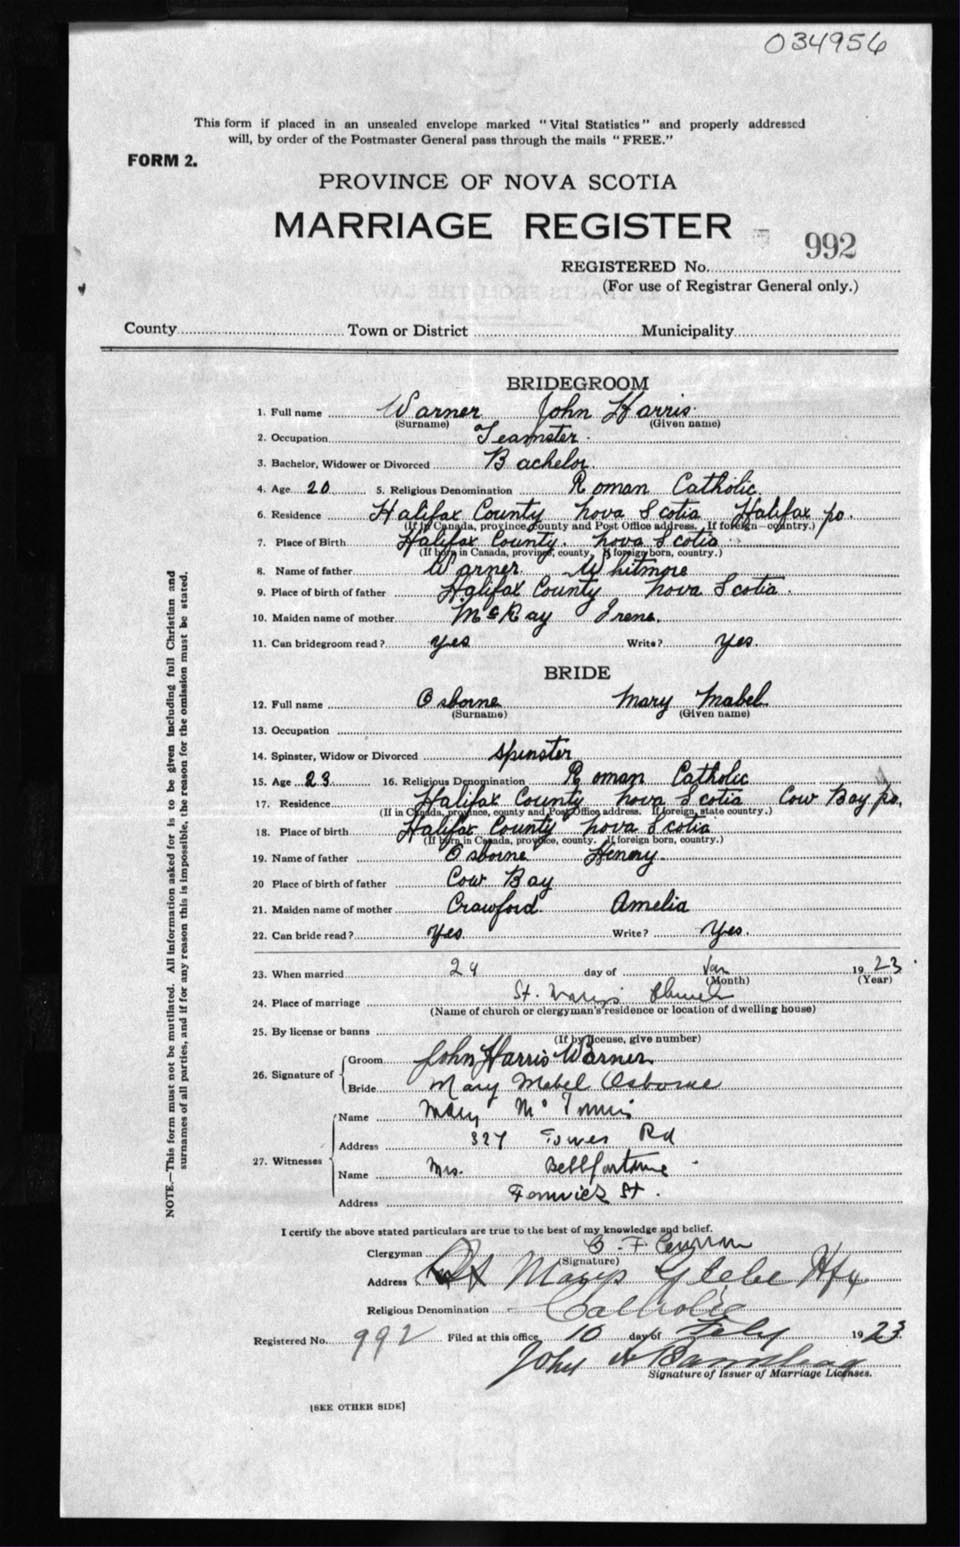 034956
This form if placed in an unsealed envelope marked "Vital Statistics" and properly addressed
will, by order of the Postmaster General pass through the mails "FREE."
FORM 2.
PROVINCE OF NOVA SCOTIA
MARRIAGE REGISTER
992
REGISTERED No.
(For use of Registrar General only.)
County Town or District Municipality
BRIDEGROOM
1. Full name Warner John Harris
(Surname) (Given name)
2. Occupation Teamster.
3. Bachelor, Widower or Divorced Bachelor.
4. Age 20 5. Religious Denomination Roman Catholic.
6. Residence Halifax County Nova Scotia Halifax po.
(If in Canada, province, county and Post Office address. If foreign—country.)
7. Place of Birth Halifax County. Nova Scotia
(If born in Canada, province, county. If foreign born, country.)
8. Name of father Warner Whitmore
9. Place of birth of father Halifax County Nova Scotia.
10. Maiden name of mother McKay Irene.
11. Can bridegroom read? yes Write? yes.
BRIDE
12. Full name Osborne Mary Mabel
(Surname) (Given name)
13. Occupation
14. Spinster, Widow or Divorced spinster
15. Age 23 16. Religious Denomination Roman Catholic
17. Residence Halifax County Nova Scotia Cow Bay po.
(If in Canada, province, county and Post Office address. If foreign, state country.)
18. Place of birth Halifax County Nova Scotia
(If born in Canada, province, county. If foreign born, country.)
19. Name of father Osborne Henery.
20 Place of birth of father Cow Bay
21. Maiden name of mother Crawford Amelia
22. Can bride read? Yes. Write? Yes.
23. When married 29 day of Jan 1923
(Month) (Year)
24. Place of marriage St. Mary's Church
(Name of church or clergyman's residence or location of dwelling house)
25. By license or banns
(If by license, give number)
26. Signature of
Groom John Harris Warner
Bride Mary Mabel Osborne
27. Witnesses
Name Mary
Address 327 Tower Rd
Name Mrs. Bellfontaine
Address Fenwick St.
I certify the above stated particulars are true to the best of my knowledge and belief.
Clergyman C. F.
(Signature)
Address St Marys Glebe Hfx.
Religious Denomination Catholic
Registered No. 992 Filed at this office 10 day of Feby 1923.
John A
Signature of Issuer of Marriage Licenses.
[SEE OTHER SIDE]
NOTE.—This form must not be mutilated. All information asked for is to be given including full Christian and
surnames of all parties, and if for any reason this is impossible, the reason for the omission must be stated.